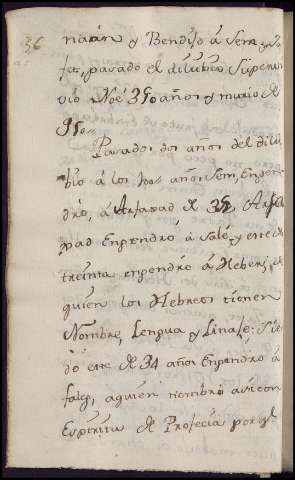 36
naan y Bendijo á Sem, y Ja-
fet, pasado el diluvio Supervi-
vio Noé 350 años y murio de
950.
Pasados dos años del dilu-
bio á los 100 años Sem, Engen-
dró, á Arfaxad de 35, Arfa
xad Engendro á Salé, y este de
treinta engendro á Heber, de
quien los Hebreos tienen
Nombre, Lengua y Linaje: Sien
dó este de 34 años Engendro á
faleg, aquien nombro asi con
Espiritu de Profecia por q.e